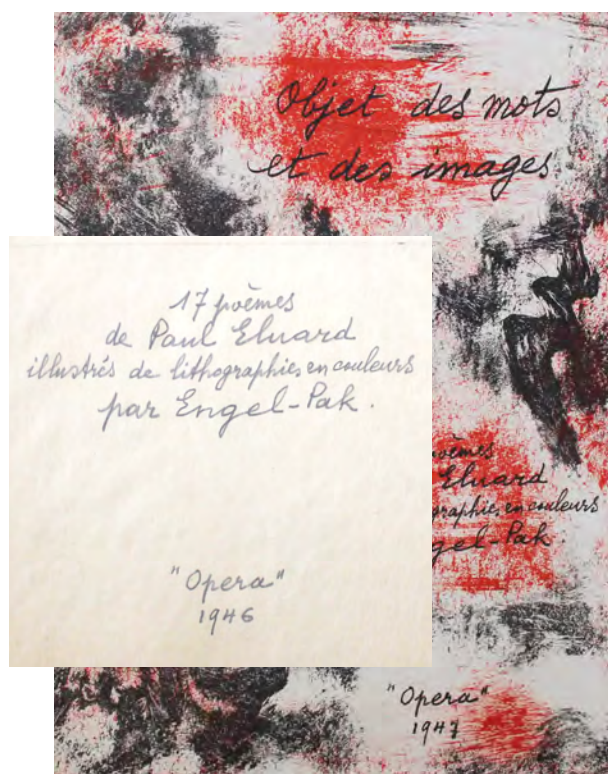 Objet des mots
et des images
17 poèmes
de Paul Eluard
illustrés de lithographies en couleurs
par Engel-Pak.
"Opera"
1946
Eluard
en couleurs
gel-Pak.
"Opera"
1947